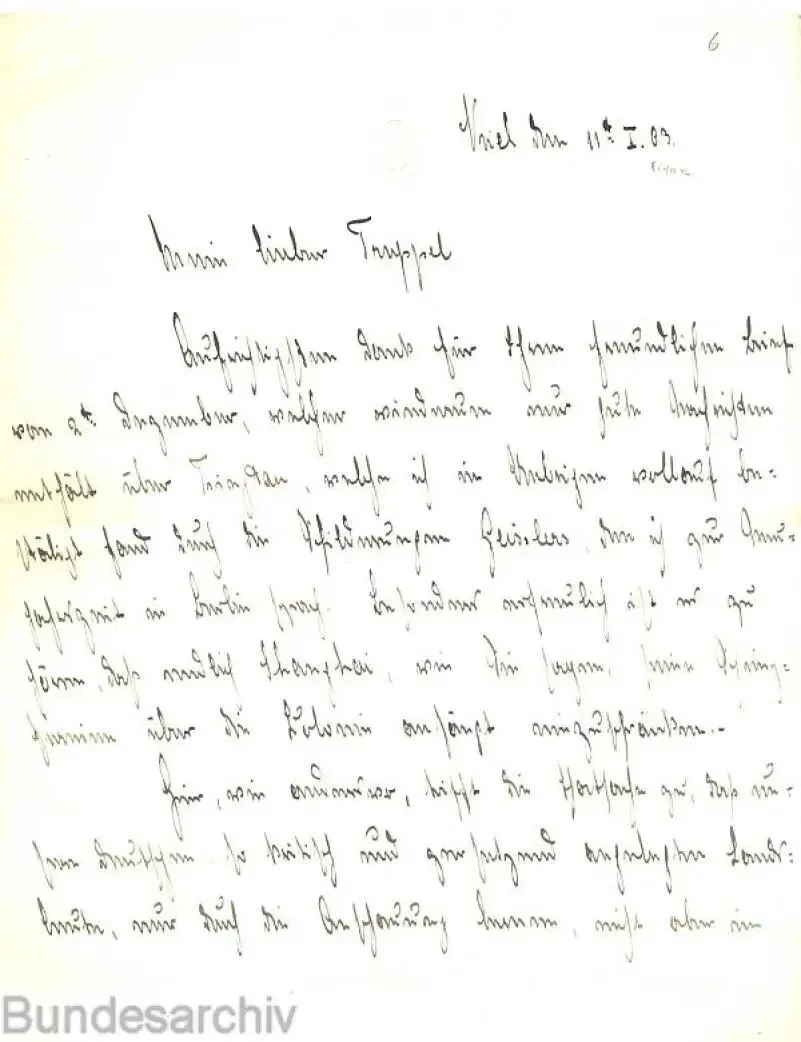 6
Kiel den 11t. I. 03.
Mein lieber Truppel
Aufrichtigsten Dank für Ihren freundlichen Brief
vom 2t. Dezember, welcher wiederum nur gute Nachrichten
enthält über Tsingtau, welche ich im Uebrigen vollauf be-
stätigt fand durch die Schilderungen Geisslers, den ich zur Neu-
jahrszeit in Berlin sprach. Besonders erfreulich ist es zu
hören, daß endlich Shanghai, wie Sie sagen, seine Schimp-
fereien über die Colonie anfängt einzuschränken.-
Hier, wie anderswo, trifft die Thatsache zu, daß un-
sere Deutschen so kritisch und zersetzend angelegten Lands-
leute, nur durch die Anschauung lernen, nicht aber im
Bundesarchiv